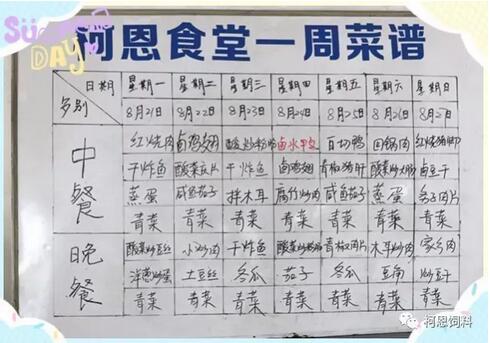 SUNDAY
柯恩食堂一周菜谱
日期 星期一 星期二 星期三 星期四 星期五 星期六 星期日
多别 8月21日 8月22日 8月23日 8月24日 8月25日 8月26日 8月27日
中餐
红烧肉 卤鸡翅 卤水 白切鸭 回锅肉 红烧猪脚
干炸鱼 酸菜 干炸鱼 卤鸡翅 青椒猪肝 酸菜炒 卤豆干
蒸蛋 咸鱼茄子 拌木耳 腐竹炒肉 咸鱼茄子 蒸蛋 肉片
青菜 青菜 青菜 青菜 青菜 青菜 青菜
晚餐
酸菜炒豆丝 小炒肉 干炸鱼 酸菜炒 青椒肉片 木耳炒肉 家乡肉
洋葱炒蛋 土豆丝 冬瓜 茄子 冬瓜 豆腐 炒豆干
青菜 青菜 青菜 青菜 青菜 青菜 青菜
柯恩饲料